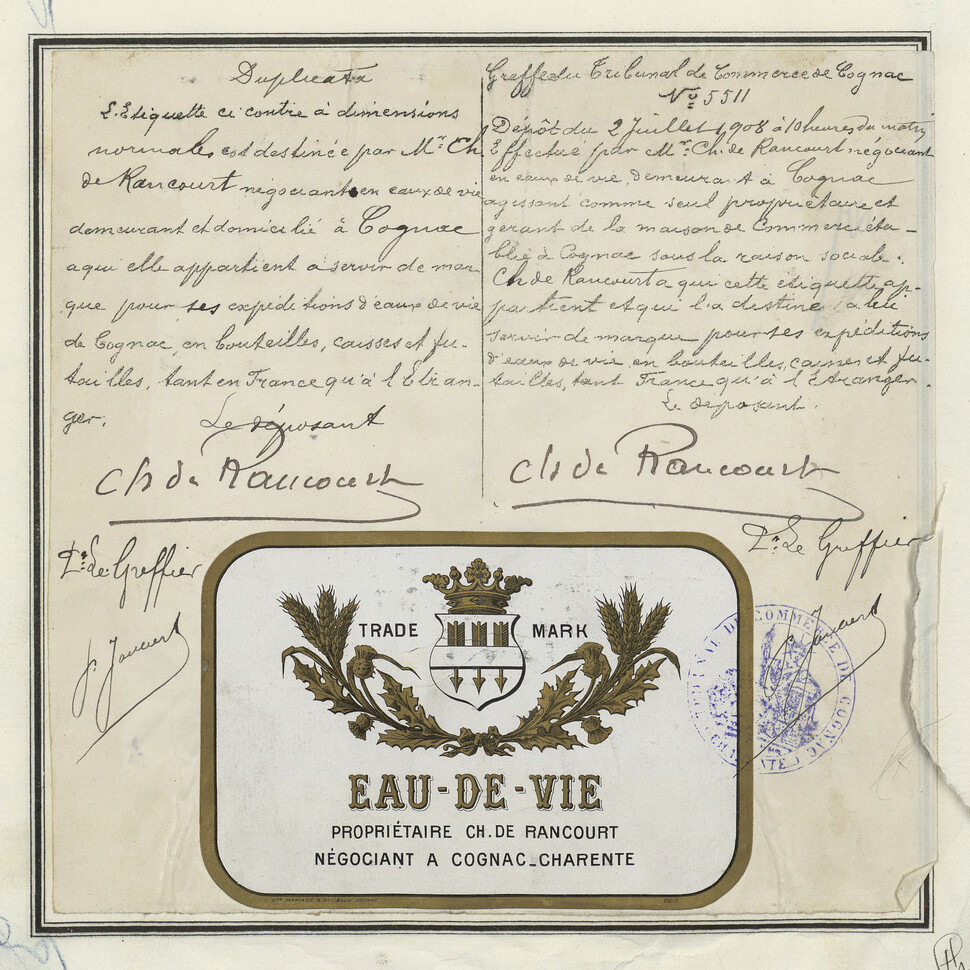 Duplicata
L'Etiquette ci contre à dimensions
normales est destinée par Mr. Ch.
de Rancourt négociant en eaux de vie
demeurant et domicilié à Cognac
a qui elle appartient a servir de mar-
que pour ses expéditions d'eaux de vie
de Cognac, en bouteilles, caisses et fu-
tailles, tant en France qu'à l'Etran-
ger.
Le déposant
Ch de Rancourt
Pr. Le Greffier
Greffe du Tribunal de Commerce de Cognac
No 5511
Dépôt du 2 Juillet 1908 à 10 heures du matin
Effectué par Mr. Ch. de Rancourt négociant
en eaux de vie, demeurant à Cognac
agissant comme seul propriétaire et
gérant de la maison de Commerce éta-
blie à Cognac sous la raison sociale.
Ch de Rancourt a qui cette etiquette ap-
partient et qui l'a destinée à lui
servir de marque pour ses expéditions
d'eaux de vie en bouteilles, caisses et fu-
tailles, tant France qu'à l'Etranger.
Le déposant.
Ch de Rancourt
Pr. Le Greffier
TRIBUNAL DE COMMERCE DE COGNAC
TRADE MARK
EAU-DE-VIE
PROPRIÉTAIRE CH. DE RANCOURT
NÉGOCIANT A COGNAC_CHARENTE